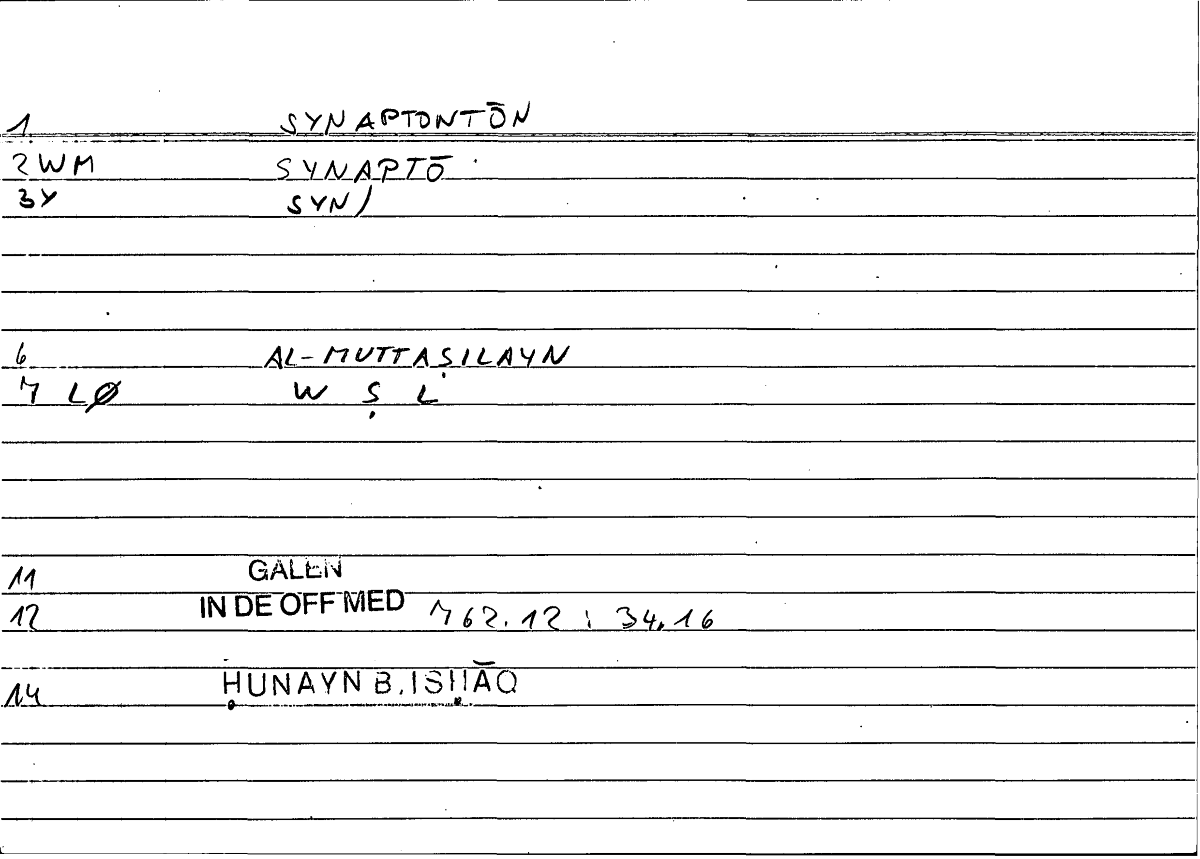 1 SYNAPTONTŌN
2WM SYNAPTŌ
3Y SYN/
6 AL-MUTTAṢILAYN
7 LØ W Ṣ L
11 GALEN
12 IN DE OFF MED 762.12 : 34.16
14 ḤUNAYN B. ISḤĀQ